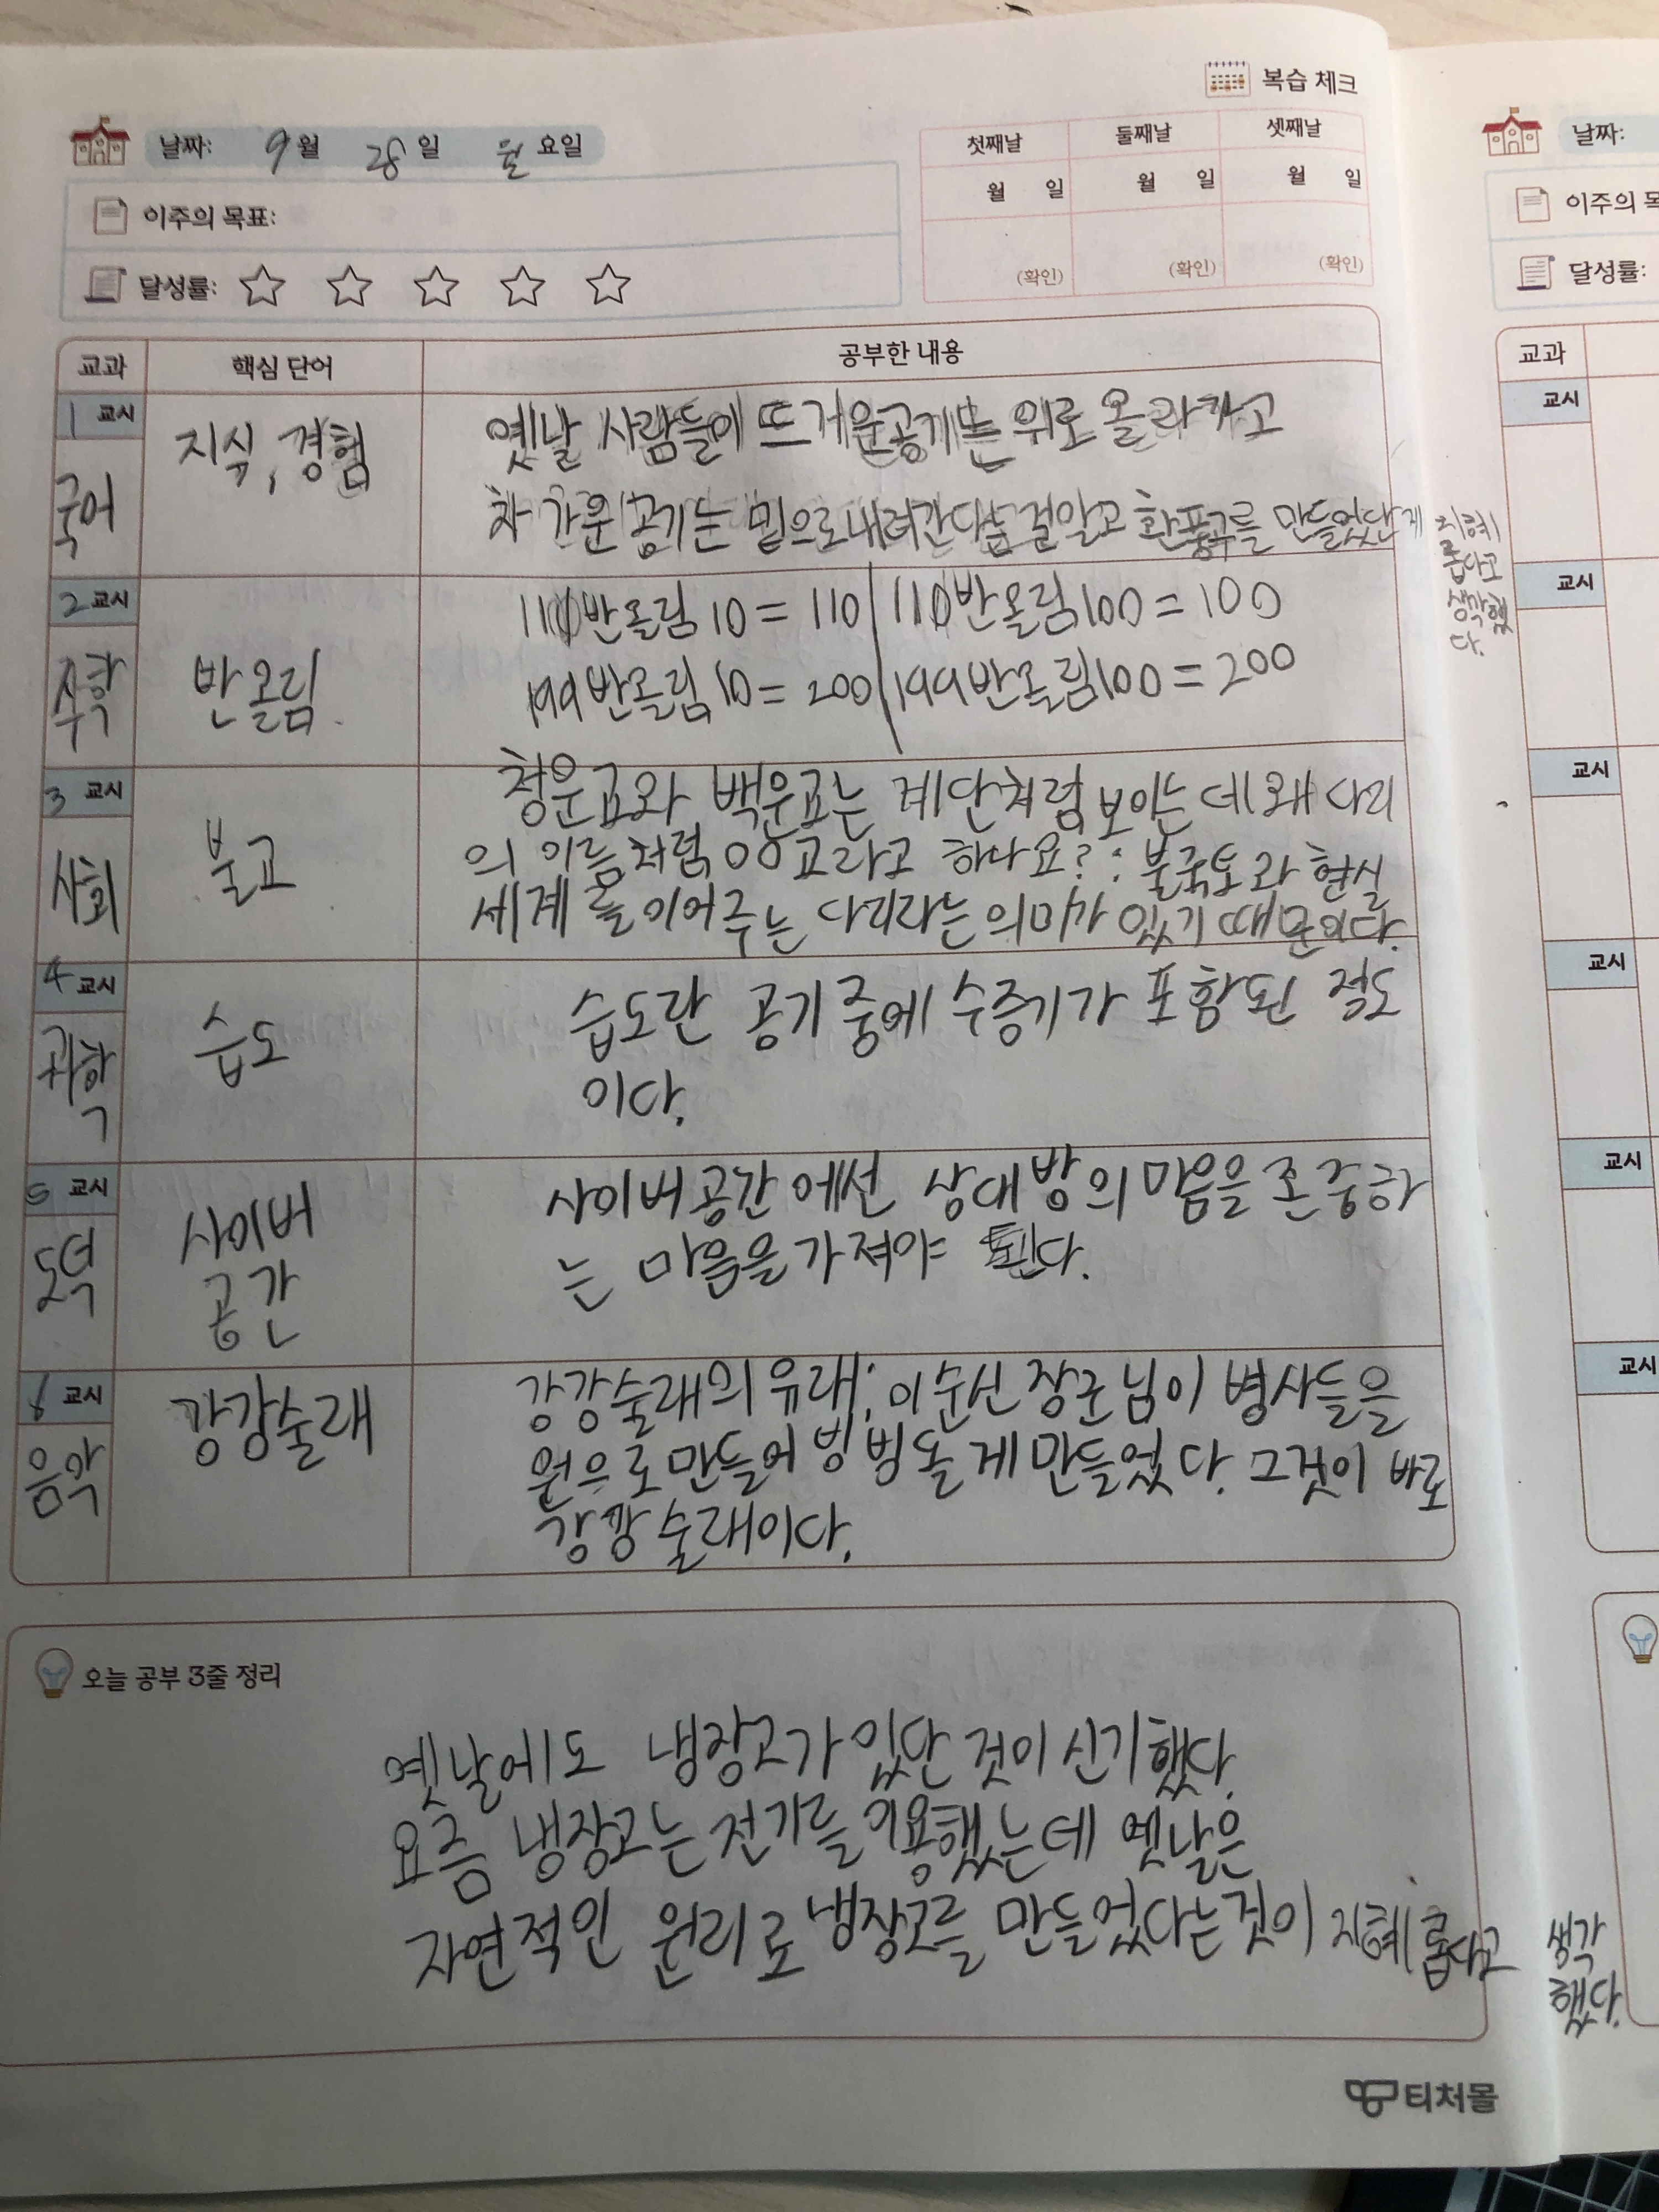 복습 체크
날짜: 9월 28일 월요일
첫째날 둘째날 셋째날
월 일 월 일 월 일
(확인) (확인) (확인)
이주의 목표:
달성률:
교과 핵심 단어 공부한 내용
1 교시
국어
지식, 경험
옛날 사람들이 뜨거운공기는 위로 올라가고
차가운 공기는 밑으로내려간다는 걸알고 환풍구를 만들었단게
지혜
롭다고
생각했
다.
2 교시
수학
반올림
110반올림 10 = 110 / 110반올림100 = 100
199반올림 10 = 200 / 199반올림100 = 200
3 교시
사회
불교
청운교와 백운교는 계단처럼 보이는데 왜 다리
의 이름처럼 00교라고 하나요? : 불국토와 현실
세계를 이어주는 다리라는 의미가 있기 때문이다.
4 교시
과학
습도
습도란 공기 중에 수증기가 포함된 정도
이다.
5 교시
도덕
사이버
공간
사이버공간에선 상대방의 마음을 존중하
는 마음을 가져야 된다.
6 교시
음악
강강술래
강강술래의 유래: 이순신 장군님이 병사들을
원으로 만들어 빙빙돌게 만들었다. 그것이 바로
강강술래이다.
오늘 공부 3줄 정리
옛날에도 냉장고가 있단 것이 신기했다.
요즘 냉장고는 전기를 이용했는데 옛날은
자연적인 원리로 냉장고를 만들었다는것이 지혜롭다고 생각
했다.
티처몰
날짜:
이주의 목
달성률:
교과
교시
교시
교시
교시
교시
교시